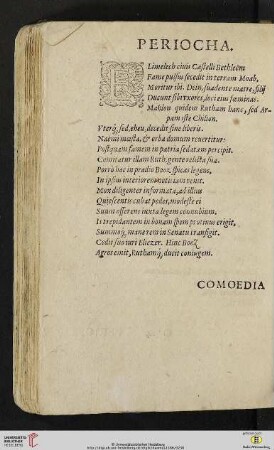 PERIOCHA.
ELimelech ciuis Castelli Bethleëm
Fame pulsus secedit in terram Moab,
Moritur ibi. Dein, suadente matre, filij
Ducunt sibi vxores, loci eius fœminas.
Mahlon quidem Rutham hanc, sed Ar-
pam iste Chilion.
Vterq́; sed, eheu, decedit sine liberis.
Naëmi mœsta, & orba domum reuertitur:
Postquam famem in patria sedatam percipit.
Comitatur illam Ruth, gente relicta sua.
Porrò hæc in prædio Booz spicas legens,
In ipsius interiorem notitiam venit.
Mox diligenter informata, ad illius
Quiescentis cubat pedes, modestè ei
Suum offerens iuxta legem connubium.
Is trepidantem in bonam spem protinus erigit,
Summaq́; mane rem in Senatu transigit.
Cedit suo iuri Eliezer. Hinc Booz
Agros emit, Ruthamq́; ducit coniugem.
COMOEDIA
UNIVERSITÄTS-
BIBLIOTHEK
HEIDELBERG
© Universitätsbibliothek Heidelberg